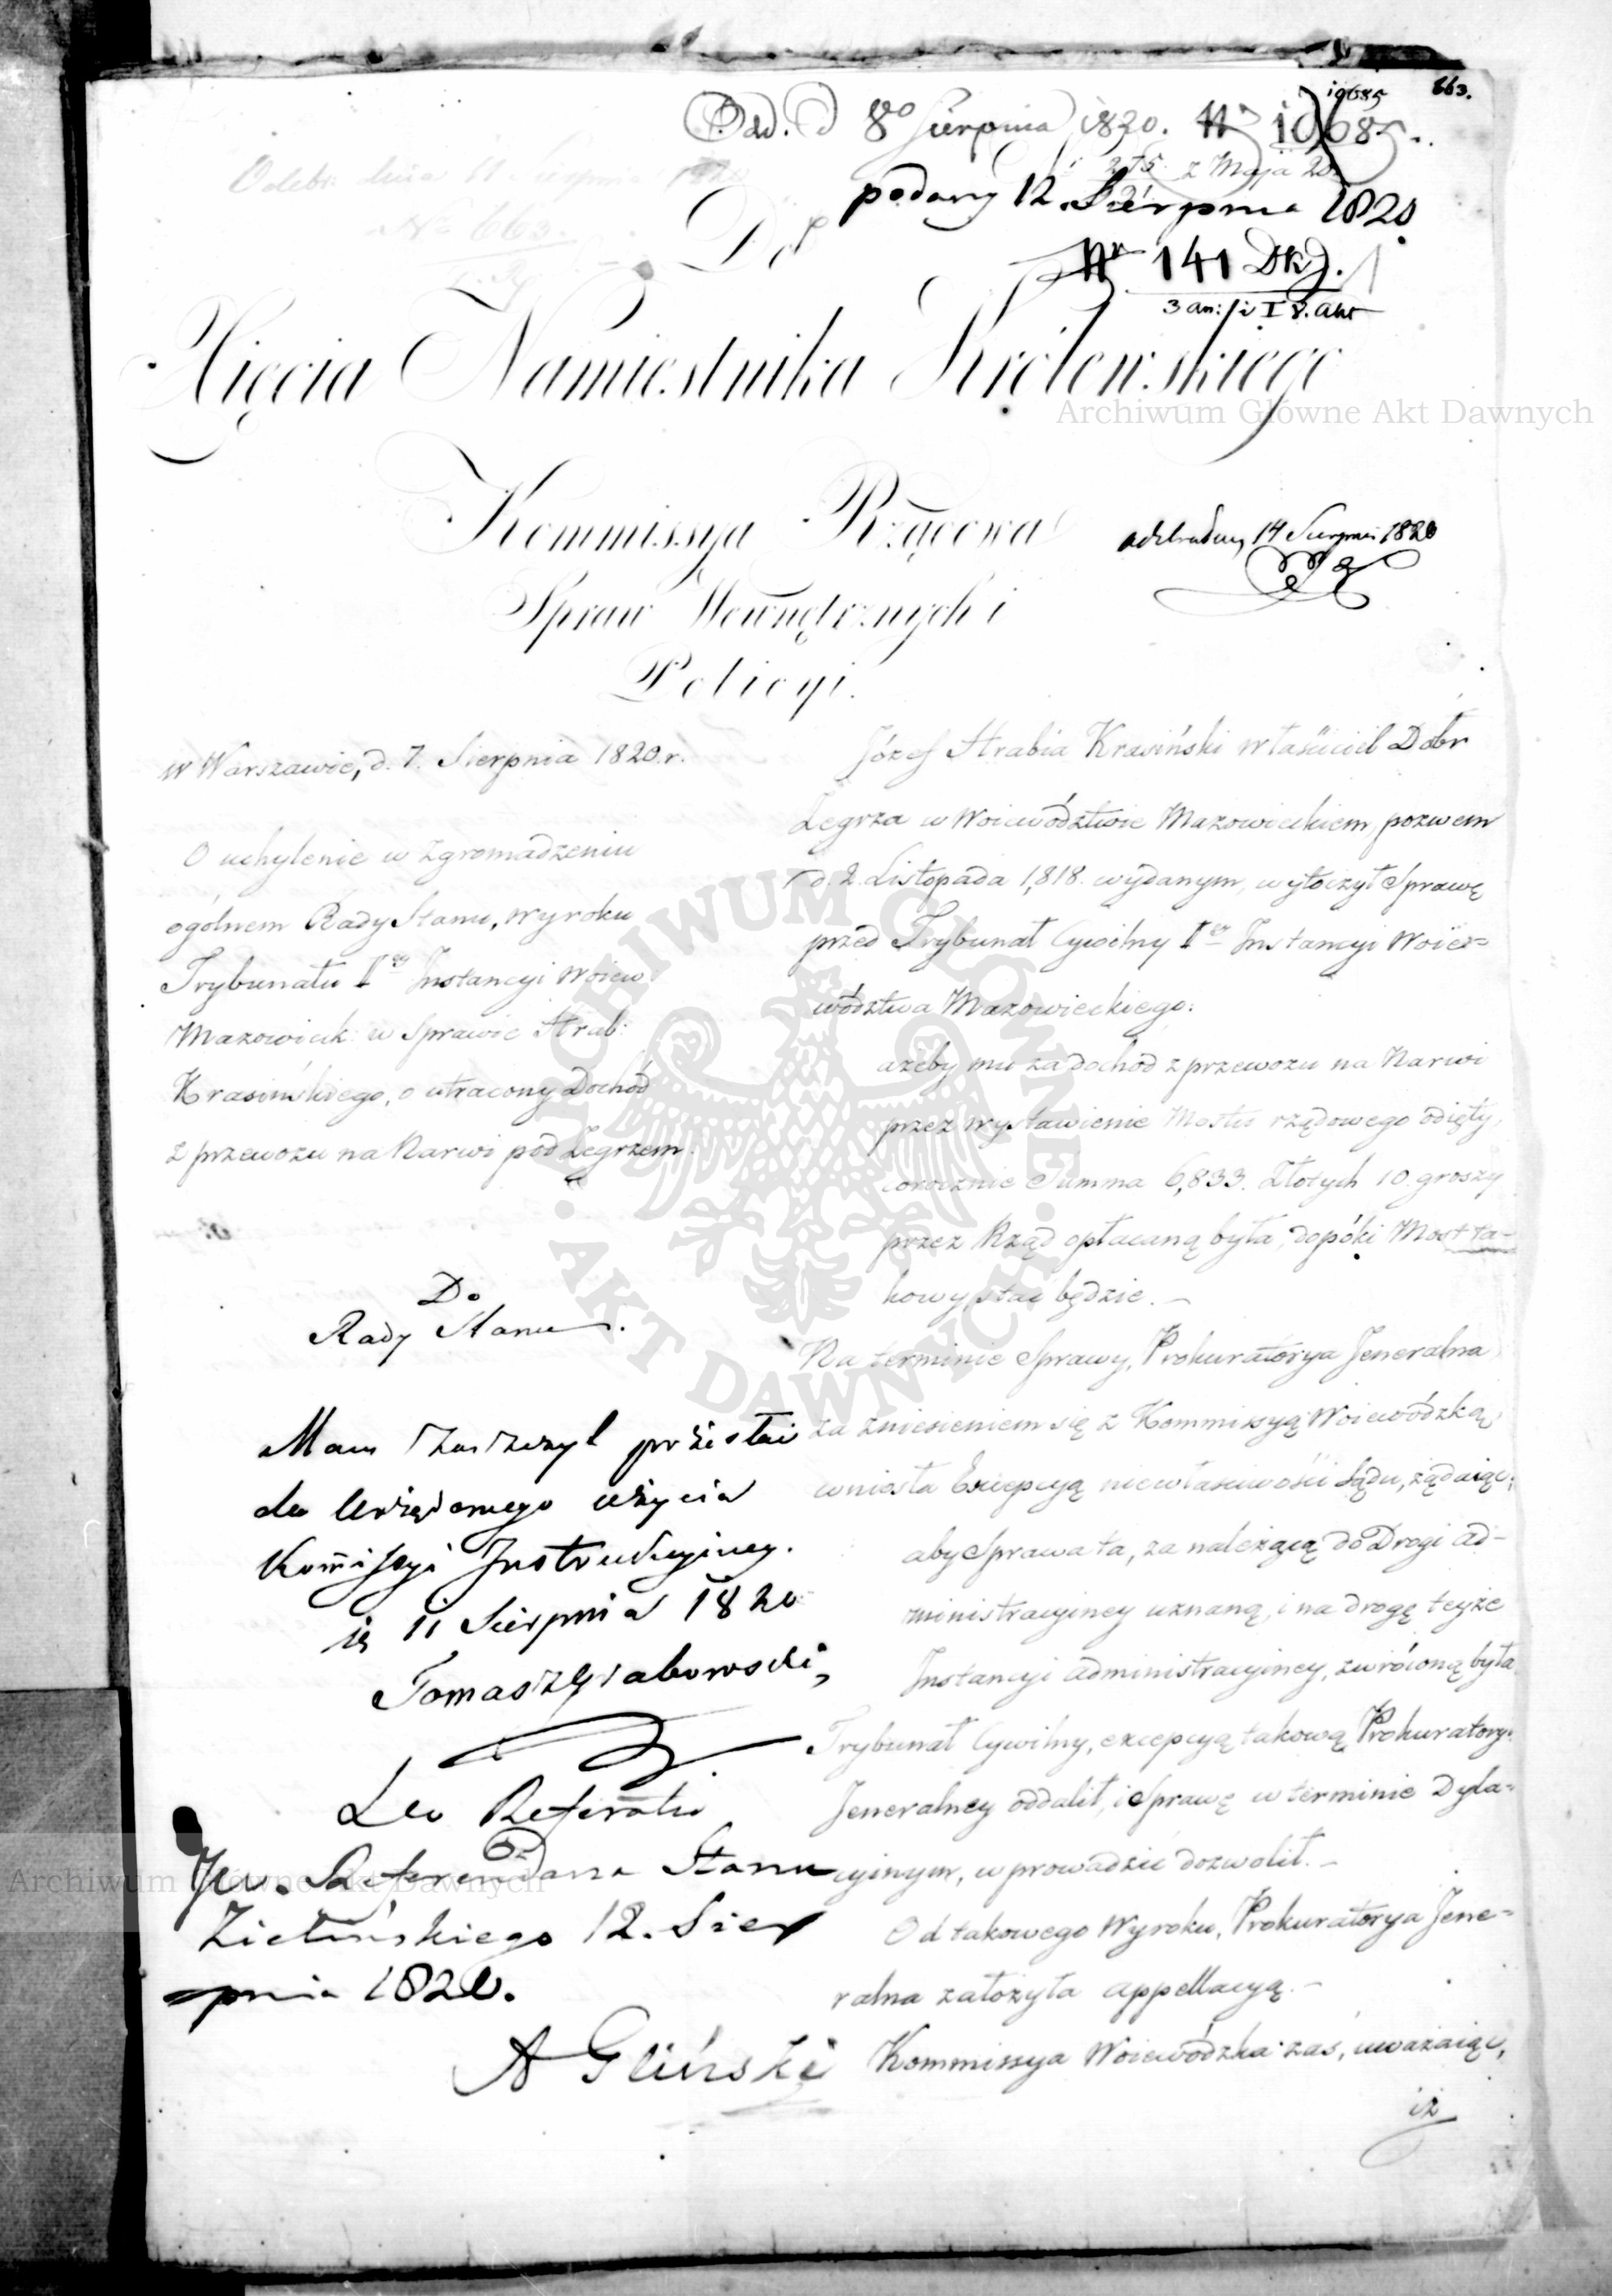 10685
663.
Odd. d 8º Sierpnia 1820. Nº 10685.
275 z Maja 20
Odebr. dnia 11 Sierpnia 1820
Nº 663.
podany 12. Sierpnia 1820
Nr 141 Dkd.
Do
Xięcia Namiestnika Królewskiego
Archiwum Główne Akt Dawnych
Kommissya Rządowa
odebrany 14 Sierpnia 1820
Spraw Wewnętrznych i
Policyi.
w Warszawie, d. 7. Sierpnia 1820.r.
O uchylenie w Zgromadzeniu
ogólnem Rady Stanu, wyroku
Trybunału Iey Instancyi Woiew.
Mazowieck: w Sprawie Hrab:
Krasińskiego, o utracony Dochód
z przewozu na Narwi pod Zegrzem.
Do
Rady Stanu.
Mam zaszczyt przesłać
do Urzędowego użycia
Kommissyi Instrukcyiney.
11 Sierpnia 1820
Tomasz Grabowski,
Do Referatu
JW. Referendarza Stanu
Zielińskiego 12. Sier
pnia 1820.
A Gliński
Józef Hrabia Krasiński właściciel Dóbr
Zegrza w Woiewództwie Mazowieckiem, pozwem
d. 2. Listopada 1,818. wydanym, wytoczył Sprawę
przed Trybunał Cywilny Iey Instancyi Woie=
wództwa Mazowieckiego:
ażeby mu za dochód z przewozu na Narwi
przez wystawienie Mostu rządowego odięty,
corocznie Summa 6,833. Złotych 10. groszy
przez Rząd opłacaną była, dopóki Most ta=
kowy stać będzie. –
Na terminie Sprawy, Prokuratorya Jeneralna
za zniesieniem się z Kommissyą Woiewódzką,
wniosła Excepcyą niewłaściwości Sądu, żądaiąc,
aby Sprawa ta, za należącą do Drogi ad=
ministracyiney uznaną, i na drogę teyże
Instancyi administracyiney, zwróconą była.
Trybunał Cywilny, excepcyą takową Prokuratoryi
Jeneralney oddalił, i Sprawę w terminie Dyla=
cyinym, wprowadzić dozwolił. –
Od takowego Wyroku, Prokuratorya Jene=
ralna założyła appellacyą. –
Kommissya Woiewódzka zaś, uważaiąc,
iż
ARCHIWUM GŁÓWNE · AKT DAWNYCH ·
Archiwum Główne Akt Dawnych